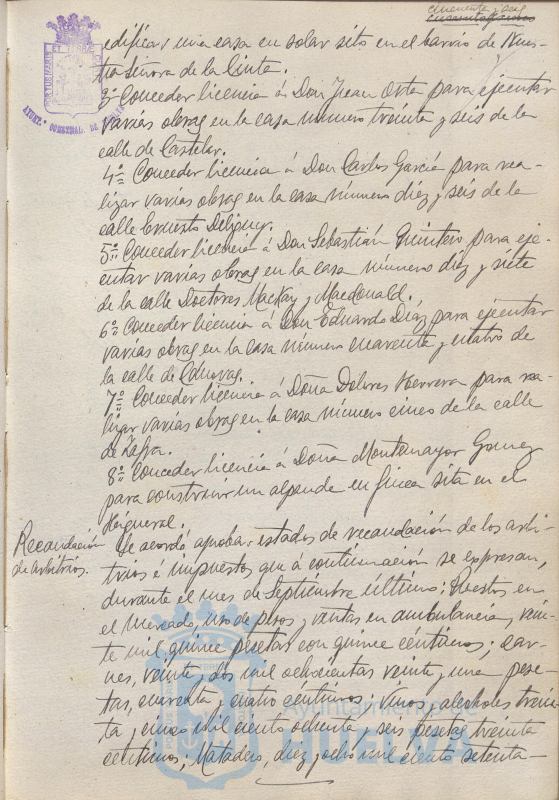 cincuenta y seis
edificar una casa en solar sito en el barrio de Nues-
tra Señora de la Cinta.
3º Conceder licencia á Don Juan Orta para ejecutar
varias obras en la casa número treinta y seis de la
calle de Castelar.
4º Conceder licencia á Don Carlos García para rea-
lizar varias obras en la casa número diez y seis de la
calle Ernesto Deligny.
5º Conceder licencia á Don Sebastián Quintero para eje-
cutar varias obras en la casa número diez y siete
de la calle Doctores Mackay y Macdonald.
6º Conceder licencia á Don Eduardo Díaz para ejecutar
varias obras en la casa número cuarenta y cuatro de
la calle de Cánovas.
7º Conceder licencia á Doña Dolores Herrera para rea-
lizar varias obras en la casa número cinco de la calle
de Zafra.
8º Conceder licencia á Doña Montemayor Gomez
para construir un alpende en finca sita en el
Higueral.
Recaudación
de arbitrios.
Se acordó aprobar estados de recaudación de los arbi-
trios é impuestos que á continuación se expresan,
durante el mes de Septiembre último: Puestos en
el mercado, uso de pesos y ventas en ambulancia, vein-
te mil quince pesetas con quince céntimos; car-
nes, veinte y dos mil ochocientas veinte y una pese-
tas, cuarenta y cuatro céntimos; vinos y alcoholes trein-
ta y cinco mil ciento ochenta y seis pesetas treinta
céntimos; Matadero, diez y ocho mil ciento setenta
Ayuntamiento de
HUELVA